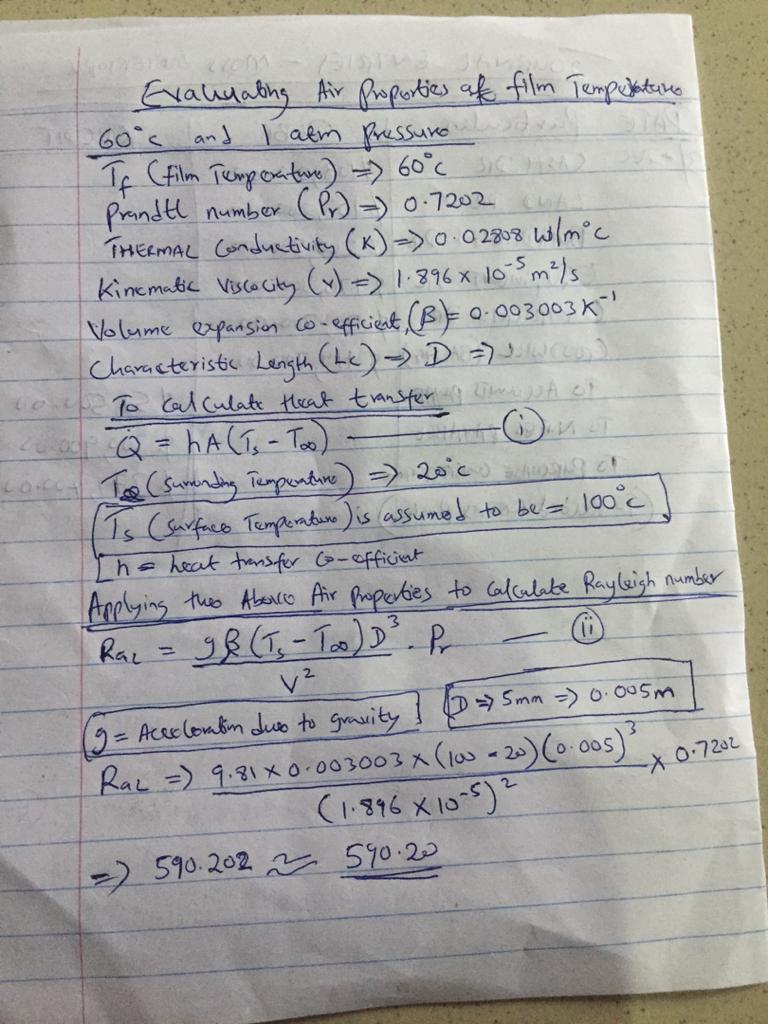 Evaluating Air Properties at film Temperature
60°c and 1 atm pressure
Tf (film Temperature) => 60°c
Prandtl number (Pr) => 0.7202
THERMAL Conductivity (K) => 0.02808 W/m°C
Kinematic Viscocity (v) => 1.896 x 10^-5 m²/s
Volume expansion co-efficient, (β) = 0.003003 K^-1
Characteristic Length (Lc) => D =>
To Calculate Heat transfer
Q̇ = hA(Ts - T∞) — (i)
T∞ (Surrounding Temperature) => 20°c
Ts (Surface Temperature) is assumed to be = 100°c
h = heat transfer Co-efficient
Applying the Above Air Properties to Calculate Rayleigh number
RaL = gβ(Ts - T∞)D³ / V² . Pr — (ii)
g = Acceleration due to gravity D => 5mm => 0.005m
RaL => 9.81 x 0.003003 x (100 - 20)(0.005)³ / (1.896 x 10^-5)² x 0.7202
=> 590.202 ≈ 590.20